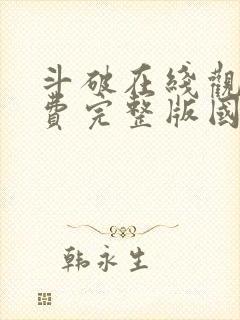 斗破在綫觀
費完整版國
韩永生